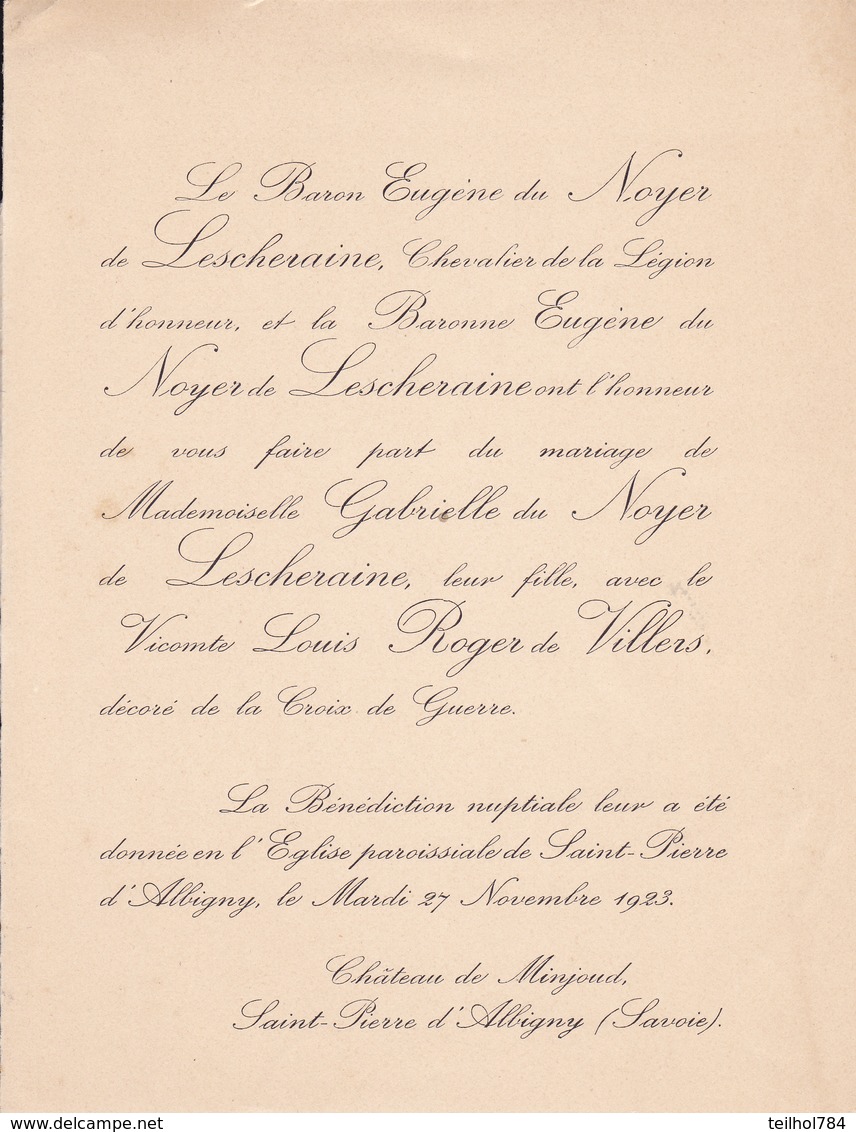 Le Baron Eugène du Noyer
de Lescheraine, Chevalier de la Légion
d'honneur, et la Baronne Eugène du
Noyer de Lescheraine ont l'honneur
de vous faire part du mariage de
Mademoiselle Gabrielle du Noyer
de Lescheraine, leur fille, avec le
Vicomte Louis Roger de Villers,
décoré de la Croix de Guerre.
La Bénédiction nuptiale leur a été
donnée en l'Eglise paroissiale de Saint-Pierre
d'Albigny, le Mardi 27 Novembre 1923.
Château de Minjoud,
Saint-Pierre d'Albigny (Savoie).
www.delcampe.net
teilhol784